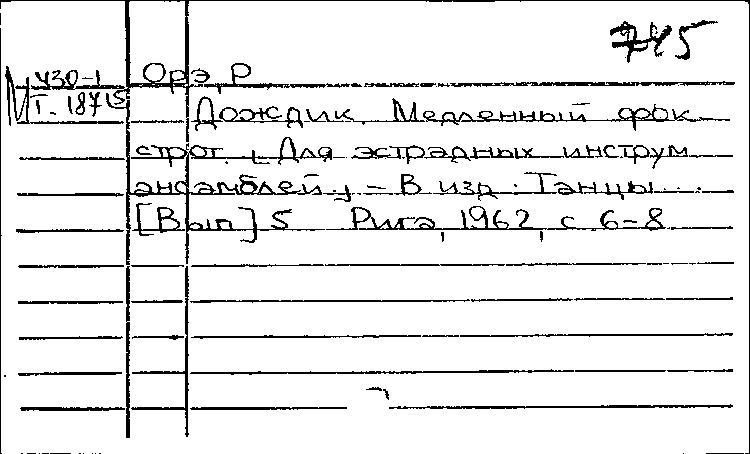 745
М У30-1 Орэ, Р
Т-187 (5 Дождик. Медленный фок-
строт. [Для эстрадных инструм
ансамблей.] - В изд: Танцы...
[Вып] 5 Рига, 1962, с 6-8